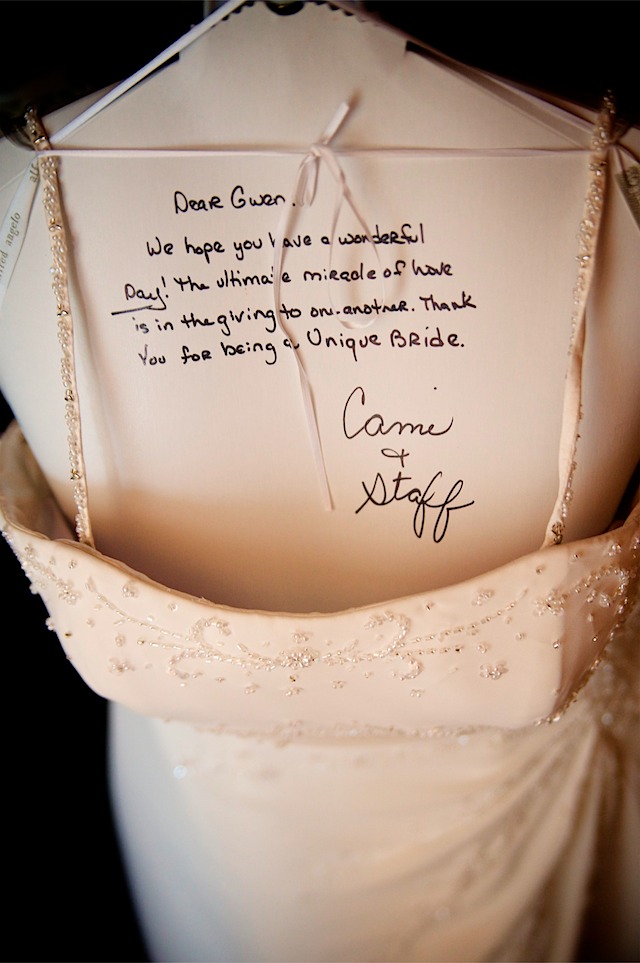 Dear Gwen.
We hope you have a wonderful
Day! The ultimate miracle of love
is in the giving to one another. Thank
You for being a Unique Bride.
Cami
&
Staff
alfred angelo